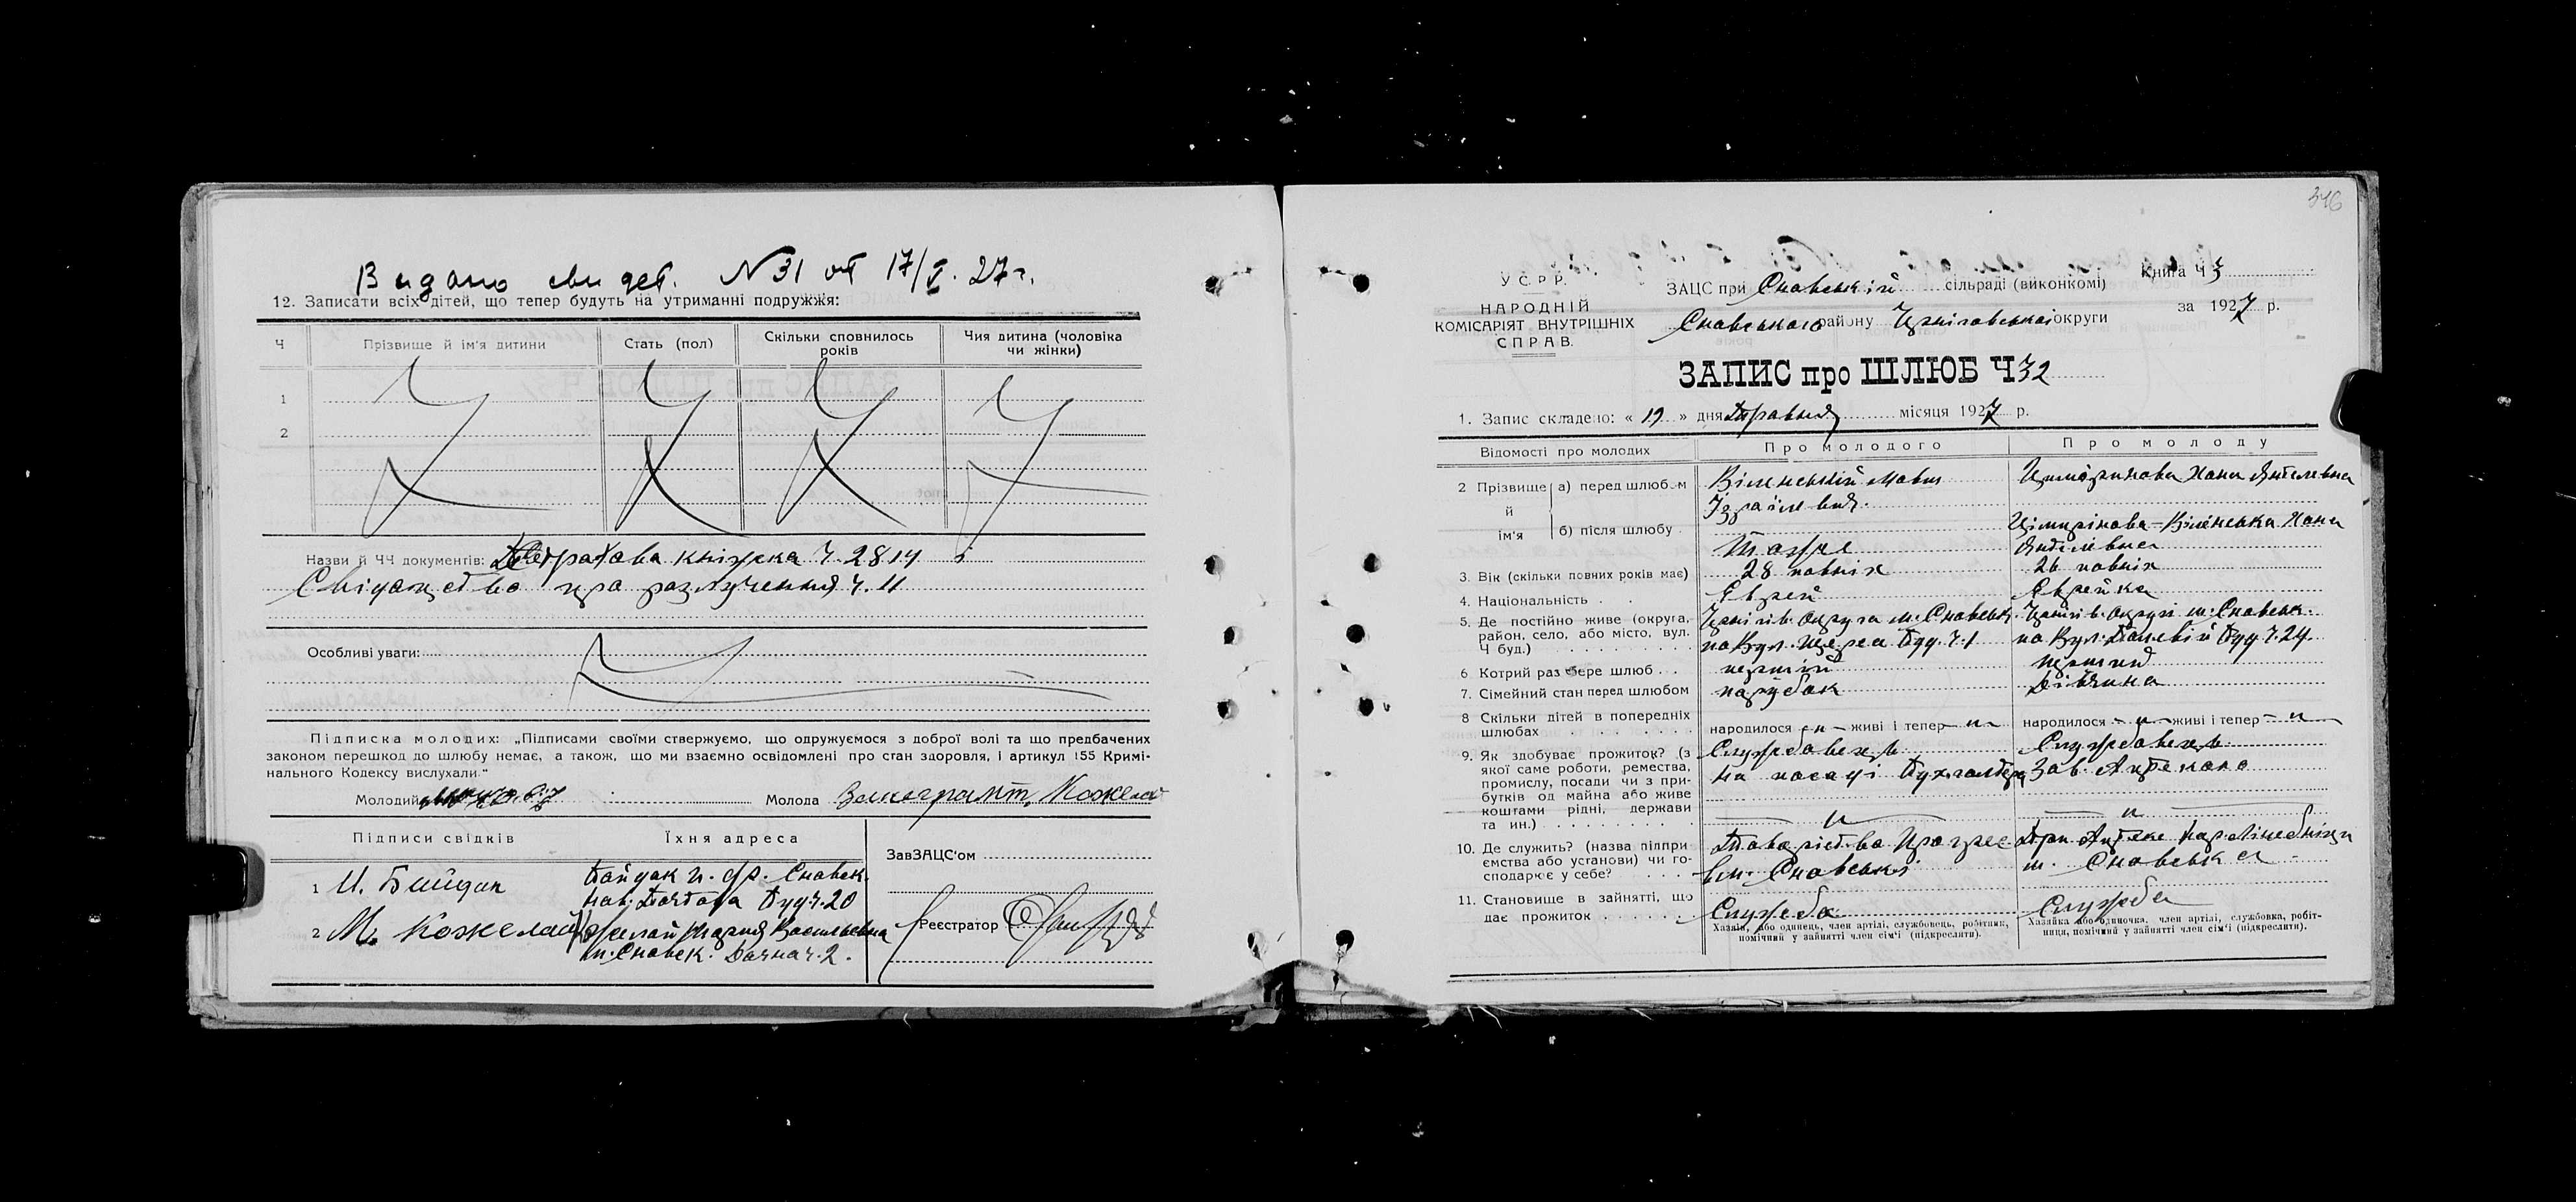 Видано свидет. N 31 от 17/V. 27 г.
12. Записати всіх дітей, що тепер будуть на утриманні подружжя:
Ч
Прізвище й ім'я дитини
Стать (пол)
Скільки сповнилось років
Чия дитина (чоловіка чи жінки)
1
2
Назви й ЧЧ документів: книжка Ч. 2814 і
Ч. 11
Особливі уваги:
Підписка молодих: „Підписами своїми ствержуємо, що одружуємося з доброї волі та що предбачених
законом перешкод до шлюбу немає, а також, що ми взаємно освідомлені про стан здоровля, і артикул 155 Кримі-
нального Кодексу вислухали“
Молодий
Молода
Підписи свідків
Їхня адреса
ЗавЗАЦС'ом
1 И. Байдак
Байдак Снавськ.
Будч. 20
2 М. Кожелай
Васильевна
м. Снавськ. Дачна ч. 2.
Реєстратор
346
У.С.Р.Р.
НАРОДНІЙ
КОМІСАРІЯТ ВНУТРІШНІХ
СПРАВ.
ЗАЦС при Снавській сільраді (виконкомі)
Снавського району Чернігівської округи
Книга Ч 3
за 1927 р.
ЗАПИС про ШЛЮБ Ч 32
1. Запис складено: « 19 » дня Травня місяця 1927 р.
Відомості про молодих
Про молодого
Про молоду
2 Прізвище й ім'я
а) перед шлюбом
Віленський
Ізраїлевич.
Хана Янкелевна
б) після шлюбу
Тоже
Віленська Хана
Янкелевна
3. Вік (скільки повних років має)
28 повних
26 повних
4. Національність
Єврей
Єврейка
5. Де постійно живе (округа,
район, село, або місто, вул.
Ч буд.)
Черніг. округа м. Снавськ.
на Вул. Буд. Ч. 1
Черніг. округи м. Снавськ.
на Вул. Буд. Ч. 24.
6 Котрий раз бере шлюб
перший
перший
7. Сімейний стан перед шлюбом
парубок
дівчина
8 Скільки дітей в попередніх
шлюбах
народилося – „ – живі і тепер – „ –
народилося – „ – живі і тепер – „
9. Як здобуває прожиток? (з
якої саме роботи, ремества,
промислу, посади чи з при-
бутків од майна або живе
коштами рідні, держави
та ин.)
на посаді Бухгалтера
Зав. Аптекою
– „ –
– „ –
10. Де служить? (назва підпри-
ємства або установи) чи го-
сподарює у себе?
Товариство Прогрес
в м. Снавські
При Аптеке
м. Снавська
11. Становище в зайнятті, що
дає прожиток
Служба
Служба
Хазяїн, або одинець, член артілі, службовець, робітник,
помічний у зайнятті член сім'ї (підкреслити).
Хазяйка або одиночка, член артілі, службовка, робіт-
ниця, помічний у зайнятті член сім'ї (підкреслити).